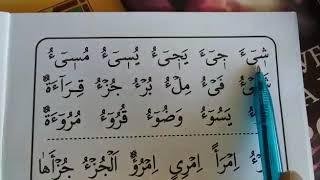 شِيْءَ جِيْءَ يَجِيْءُ يُسِيْءُ مُسِيْءُ
شَيْءُ فَيْءُ مِلْءُ بُرْءُ جُزْءُ قِرَآءَةٌ
يَسُوْءُ وَضُوْءُ قُرُوْءَ مُرُوْءَةٌ
اِمْرَأً اِمْرِئٍ اِمْرُؤٌ اَلْجُزْءُ جُزْأَهَا